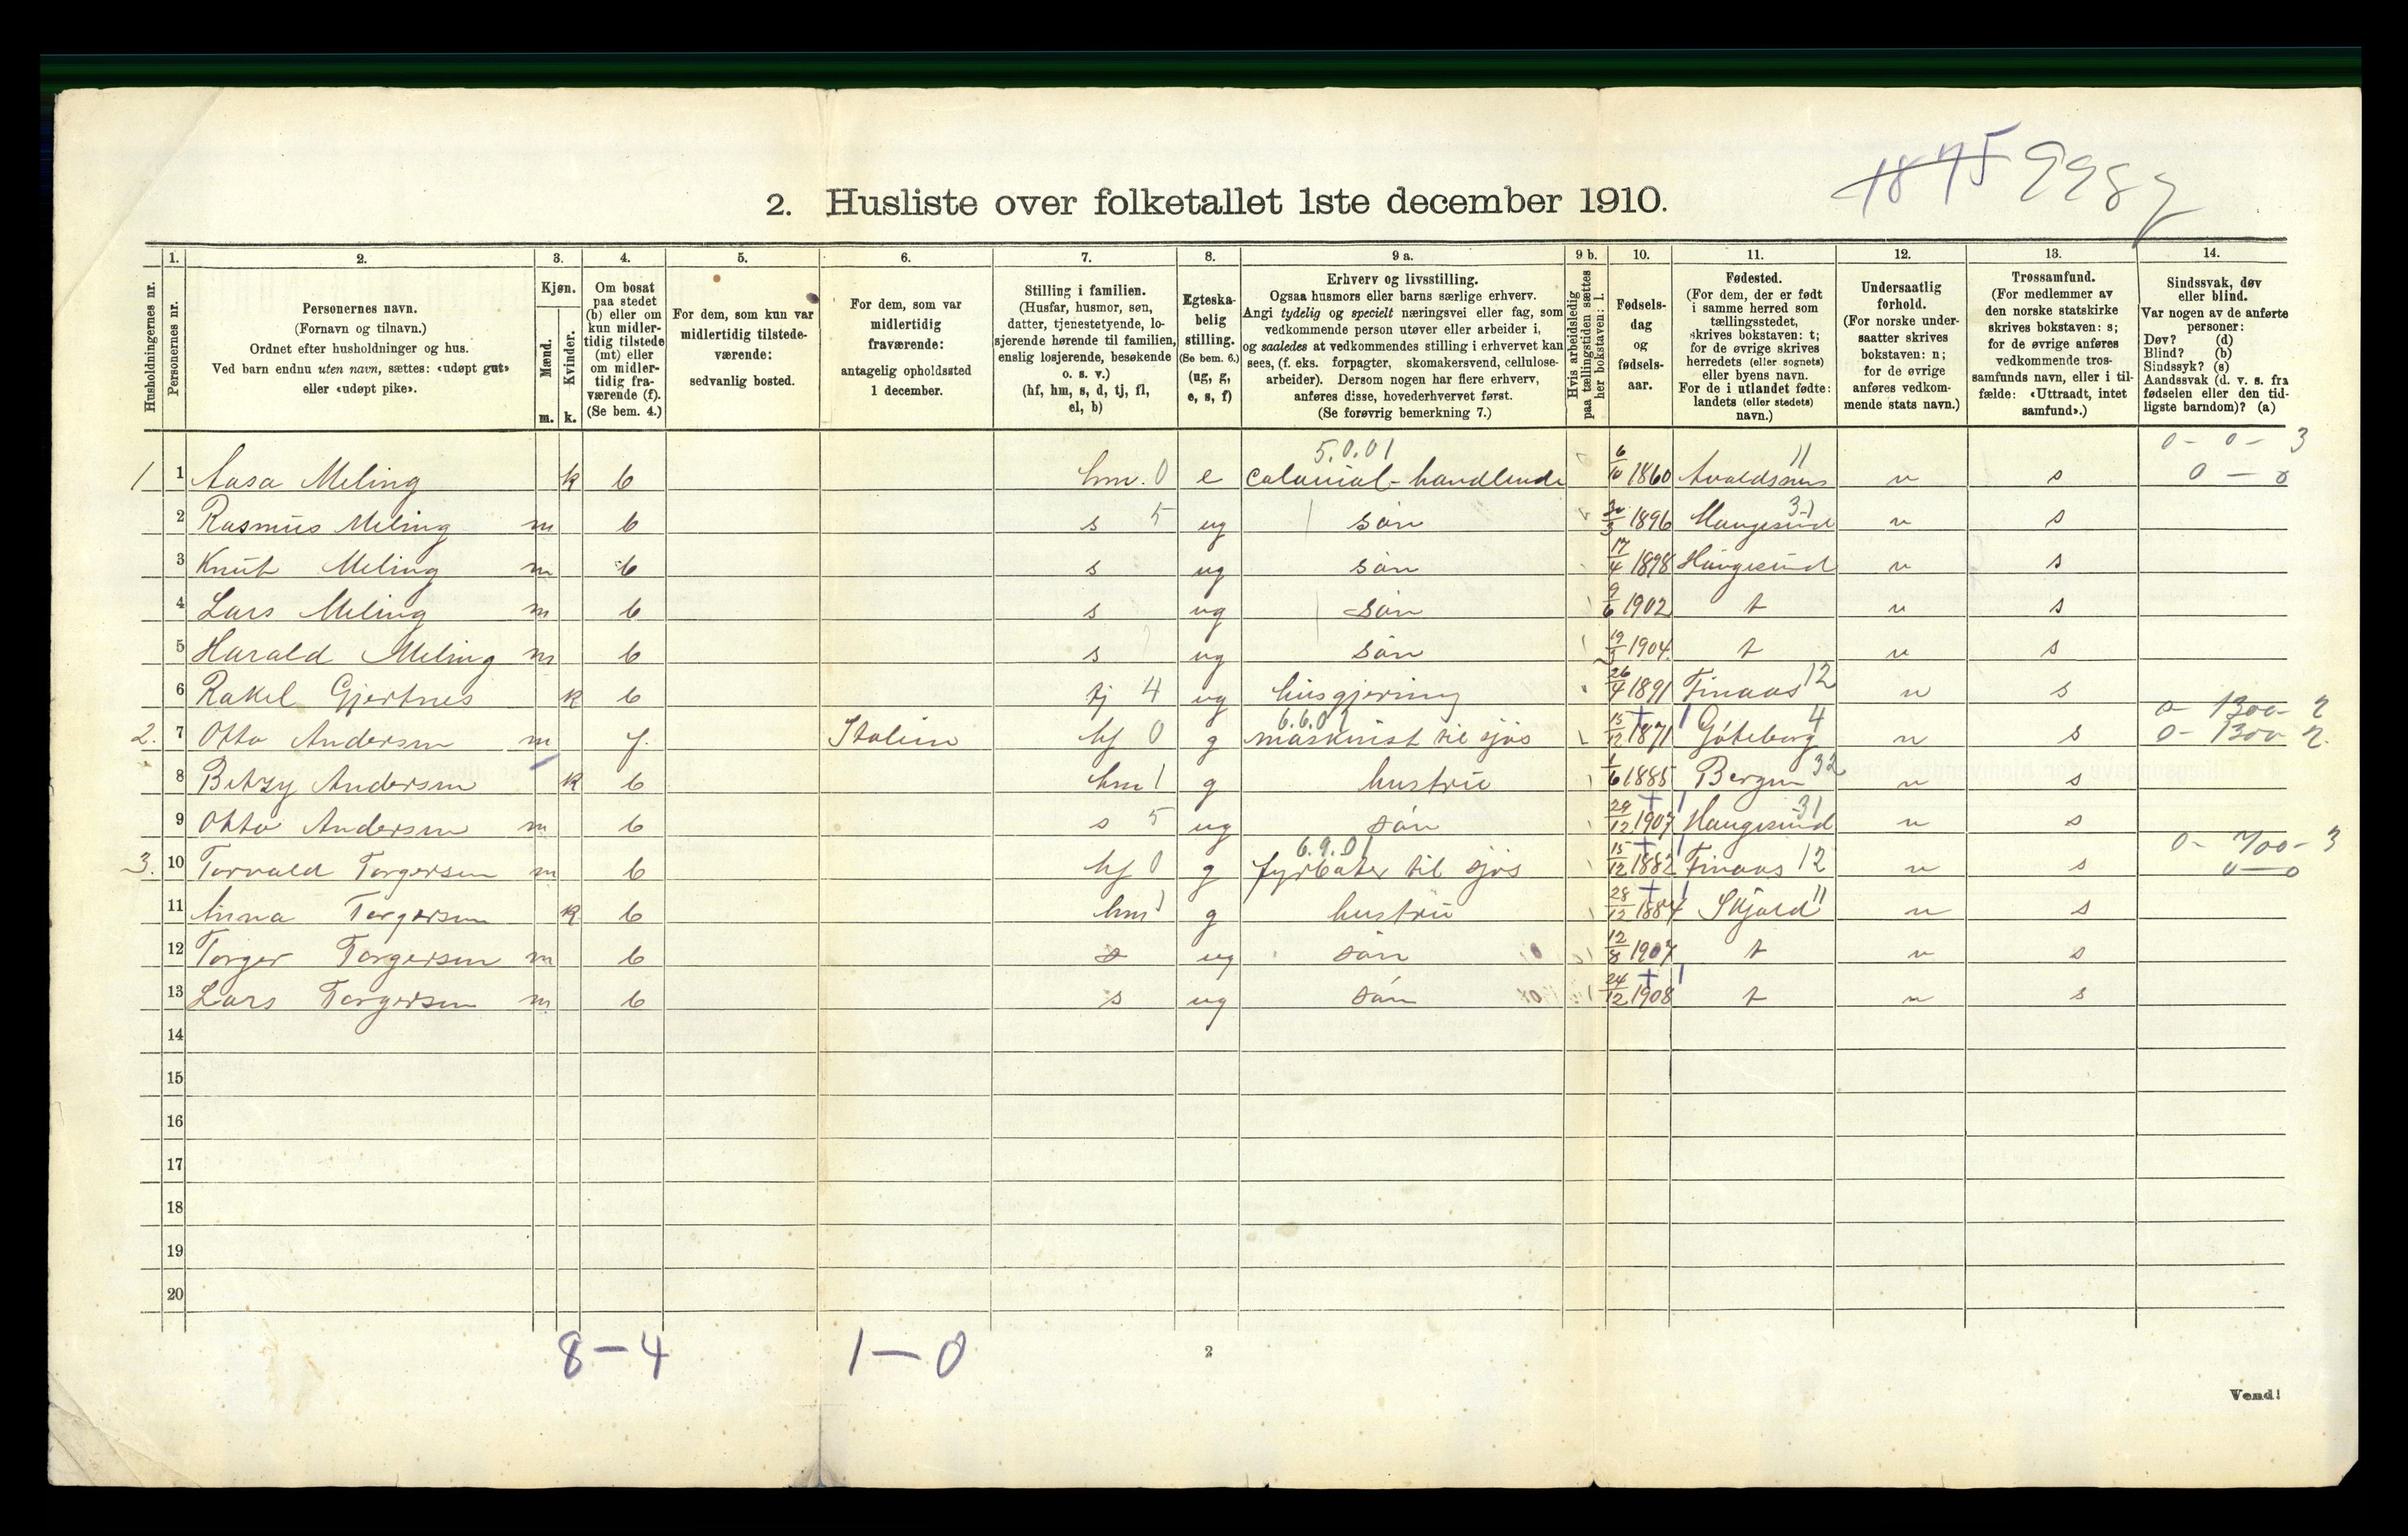 1875 9987
2. Husliste over folketallet 1ste december 1910.
1. 2. 3. 4. 5. 6. 7. 8. 9 a. 9 b. 10. 11. 12. 13. 14.
Husholdningernes nr.
Personernes nr.
Personernes navn.
(Fornavn og tilnavn.)
Ordnet efter husholdninger og hus.
Ved barn endnu uten navn, sættes: «udøpt gut»
eller «udøpt pike».
Kjøn.
Mænd.
Kvinder.
m. k.
Om bosat
paa stedet
(b) eller om
kun midler-
tidig tilstede
(mt) eller
om midler-
tidig fra-
værende (f).
(Se bem. 4.)
For dem, som kun var
midlertidig tilstede-
værende:
sedvanlig bosted.
For dem, som var
midlertidig
fraværende:
antagelig opholdssted
1 december.
Stilling i familien.
(Husfar, husmor, søn,
datter, tjenestetyende, lo-
sjerende hørende til familien,
enslig losjerende, besøkende
o. s. v.)
(hf, hm, s, d, tj, fl,
el, b)
Egteska-
belig
stilling.
(Se bem. 6.)
(ug, g,
e, s, f)
Erhverv og livsstilling.
Ogsaa husmors eller barns særlige erhverv.
Angi tydelig og specielt næringsvei eller fag, som
vedkommende person utøver eller arbeider i,
og saaledes at vedkommendes stilling i erhvervet kan
sees, (f. eks. forpagter, skomakersvend, cellulose-
arbeider). Dersom nogen har flere erhverv,
anføres disse, hovederhvervet først.
(Se forøvrig bemerkning 7.)
Hvis arbeidsledig
paa tællingstiden sættes
her bokstaven: l.
Fødsels-
dag
og
fødsels-
aar.
Fødested.
(For dem, der er født
i samme herred som
tællingsstedet,
skrives bokstaven: t;
for de øvrige skrives
herredets (eller sognets)
eller byens navn.
For de i utlandet fødte:
landets (eller stedets)
navn.)
Undersaatlig
forhold.
(For norske under-
saatter skrives
bokstaven: n;
for de øvrige
anføres vedkom-
mende stats navn.)
Trossamfund.
(For medlemmer av
den norske statskirke
skrives bokstaven: s;
for de øvrige anføres
vedkommende tros-
samfunds navn, eller i til-
fælde: «Uttraadt, intet
samfund».)
Sindssvak, døv
eller blind.
Var nogen av de anførte
personer:
Døv? (d)
Blind? (b)
Sindssyk? (s)
Aandssvak (d. v. s. fra
fødselen eller den tid-
ligste barndom)? (a)
5.0.01 11 0 - 0 - 3
1 1 Aasa Meling k b hm. 0 e colonial-handlende 6/10 1860 Avaldsnes n s 0 - 0
2 Rasmus Meling m b s 5 ug søn 30/3 1896 Haugesund 31 n s
3 Knut Meling m b s ug søn 17/4 1898 Haugesund n s
4 Lars Meling m b s ug søn 9/6 1902 t n s
5 Harald Meling m b s ug søn 19/3 1904 t n s
6 Rakel Gjertnes k b tj 4 ug husgjerning 26/4 1891 Finaas 12 n s
6.6.01 0 - 1300 - 2
2. 7 Otto Andersen m f. Italien hf 0 g maskinist til sjøs 15/12 1871 Göteborg 4 n s 0 - 1300 2.
8 Betzy Andersen k b hm 1 g hustru 1/6 1885 Bergen 32 n s
9 Otto Andersen m b s 5 ug søn 29/12 1907 Haugesund 31 n s
6.9.01 0 - 700 - 3
3. 10 Torvald Torgersen m b hf 0 g fyrbøter til sjøs 15/12 1882 Finaas 12 n s 0 - 0
11 Anna Torgersen k b hm 1 g hustru 28/12 1884 Skjold 11 n s
12 Torger Torgersen m b s ug søn 12/8 1907 t n s
13 Lars Torgersen m b s ug søn 24/12 1908 t n s
14
15
16
17
18
19
20
8-4 1-0
2
Vend!